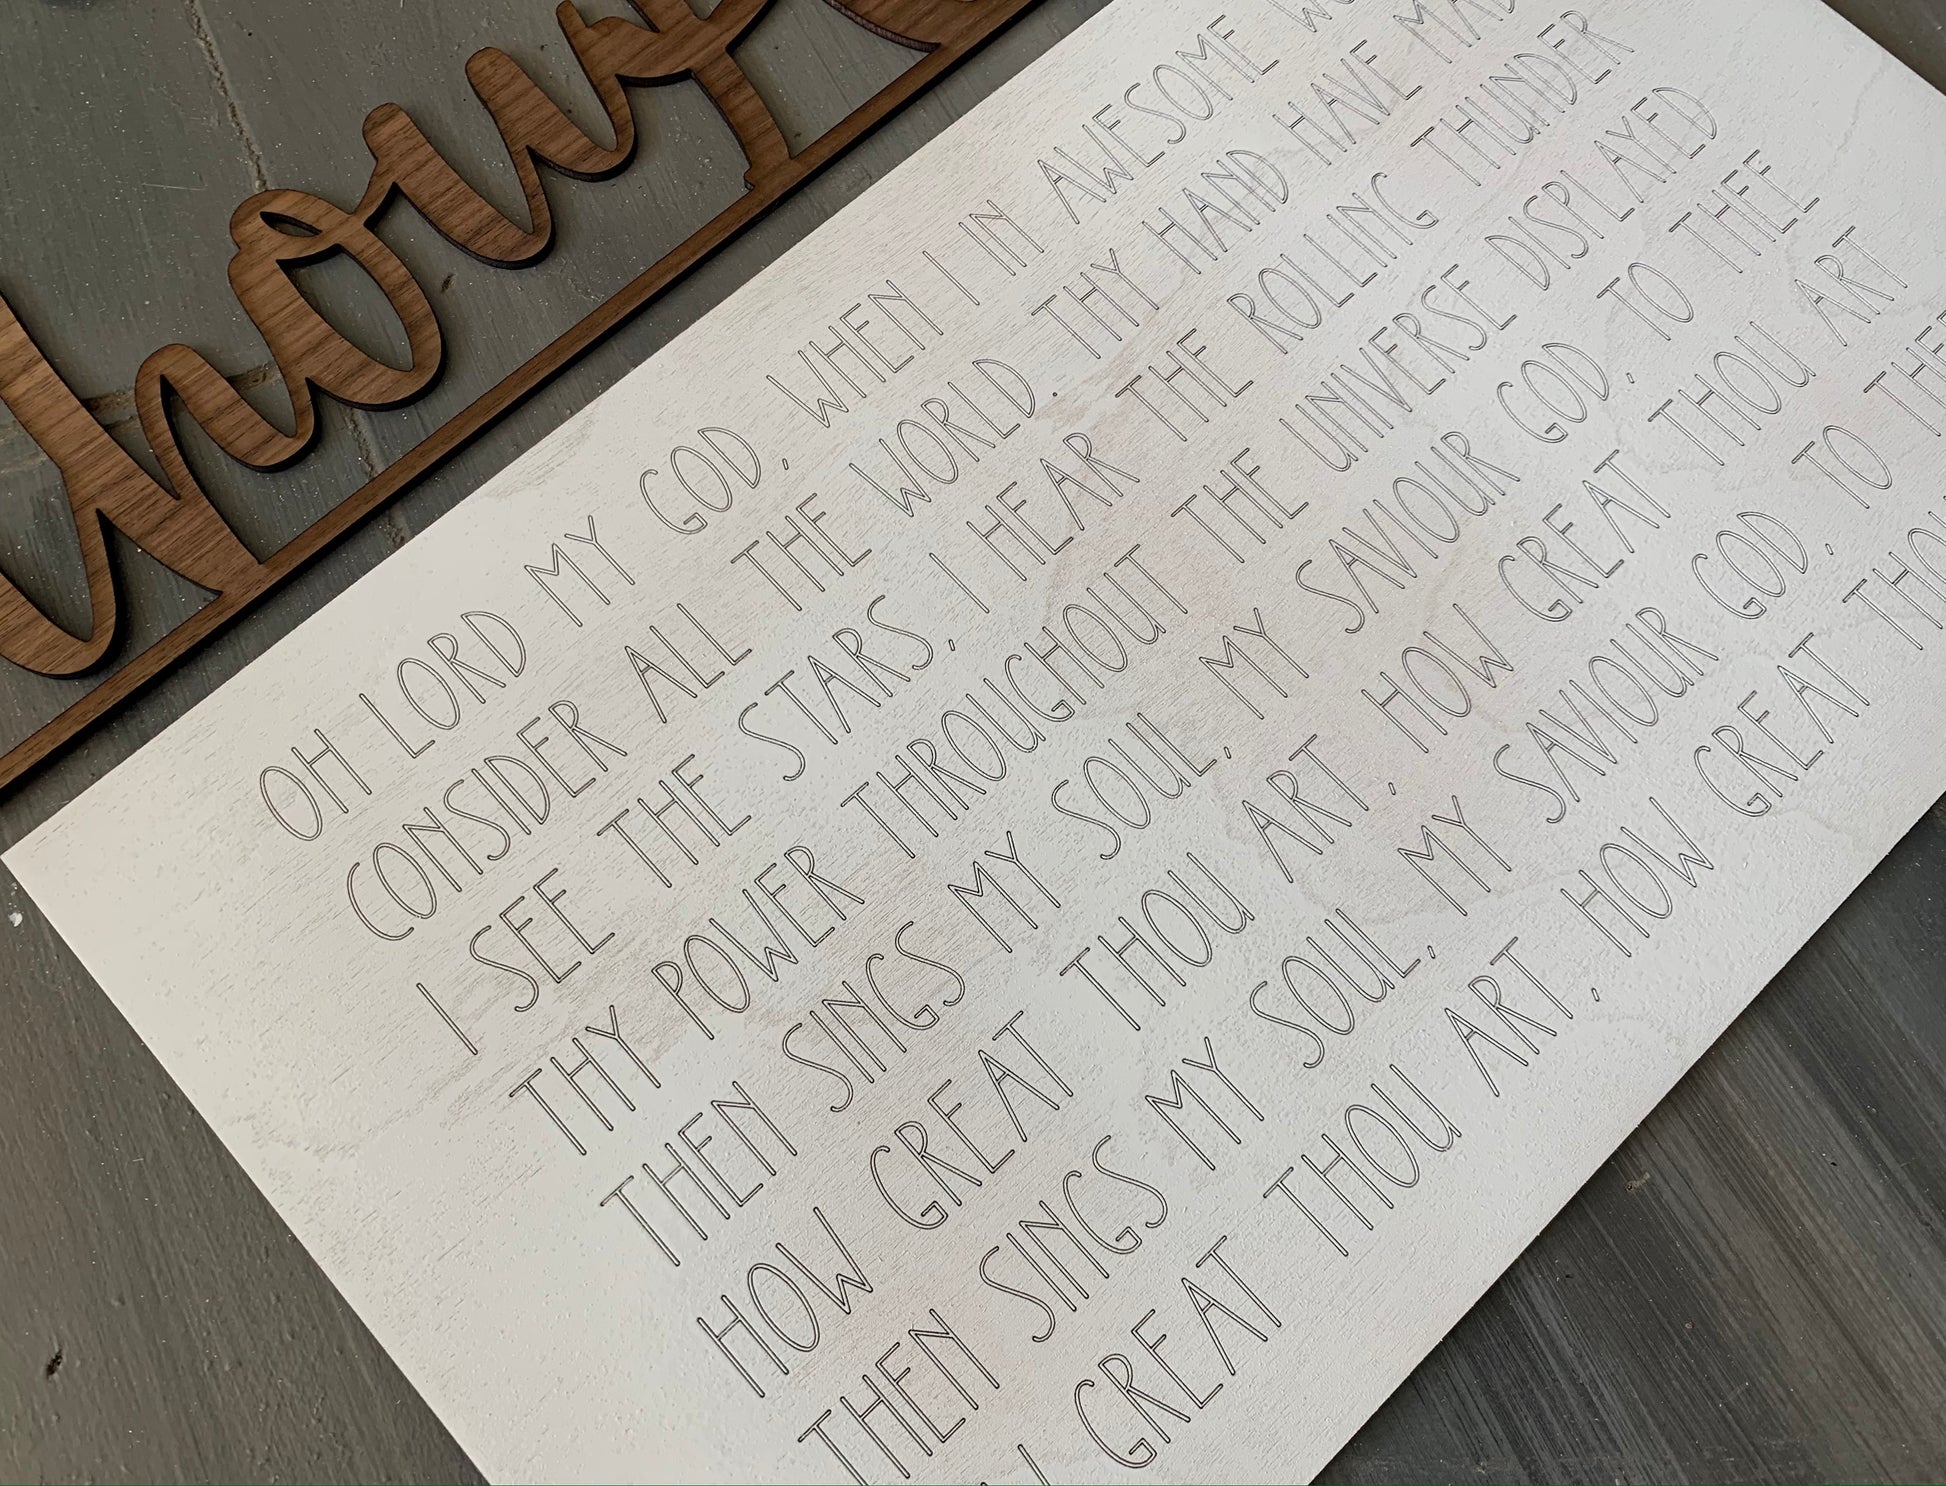 how
OH LORD MY GOD, WHEN I IN AWESOME
CONSIDER ALL THE WORLD THY HAND HAVE
I SEE THE STARS, I HEAR THE ROLLING THUNDER
THY POWER THROUGHOUT THE UNIVERSE DISPLAYED
THEN SINGS MY SOUL, MY SAVIOUR GOD, TO THEE
HOW GREAT THOU ART, HOW GREAT THOU ART
THEN SINGS MY SOUL, MY SAVIOUR GOD, TO
GREAT THOU ART, HOW GREAT